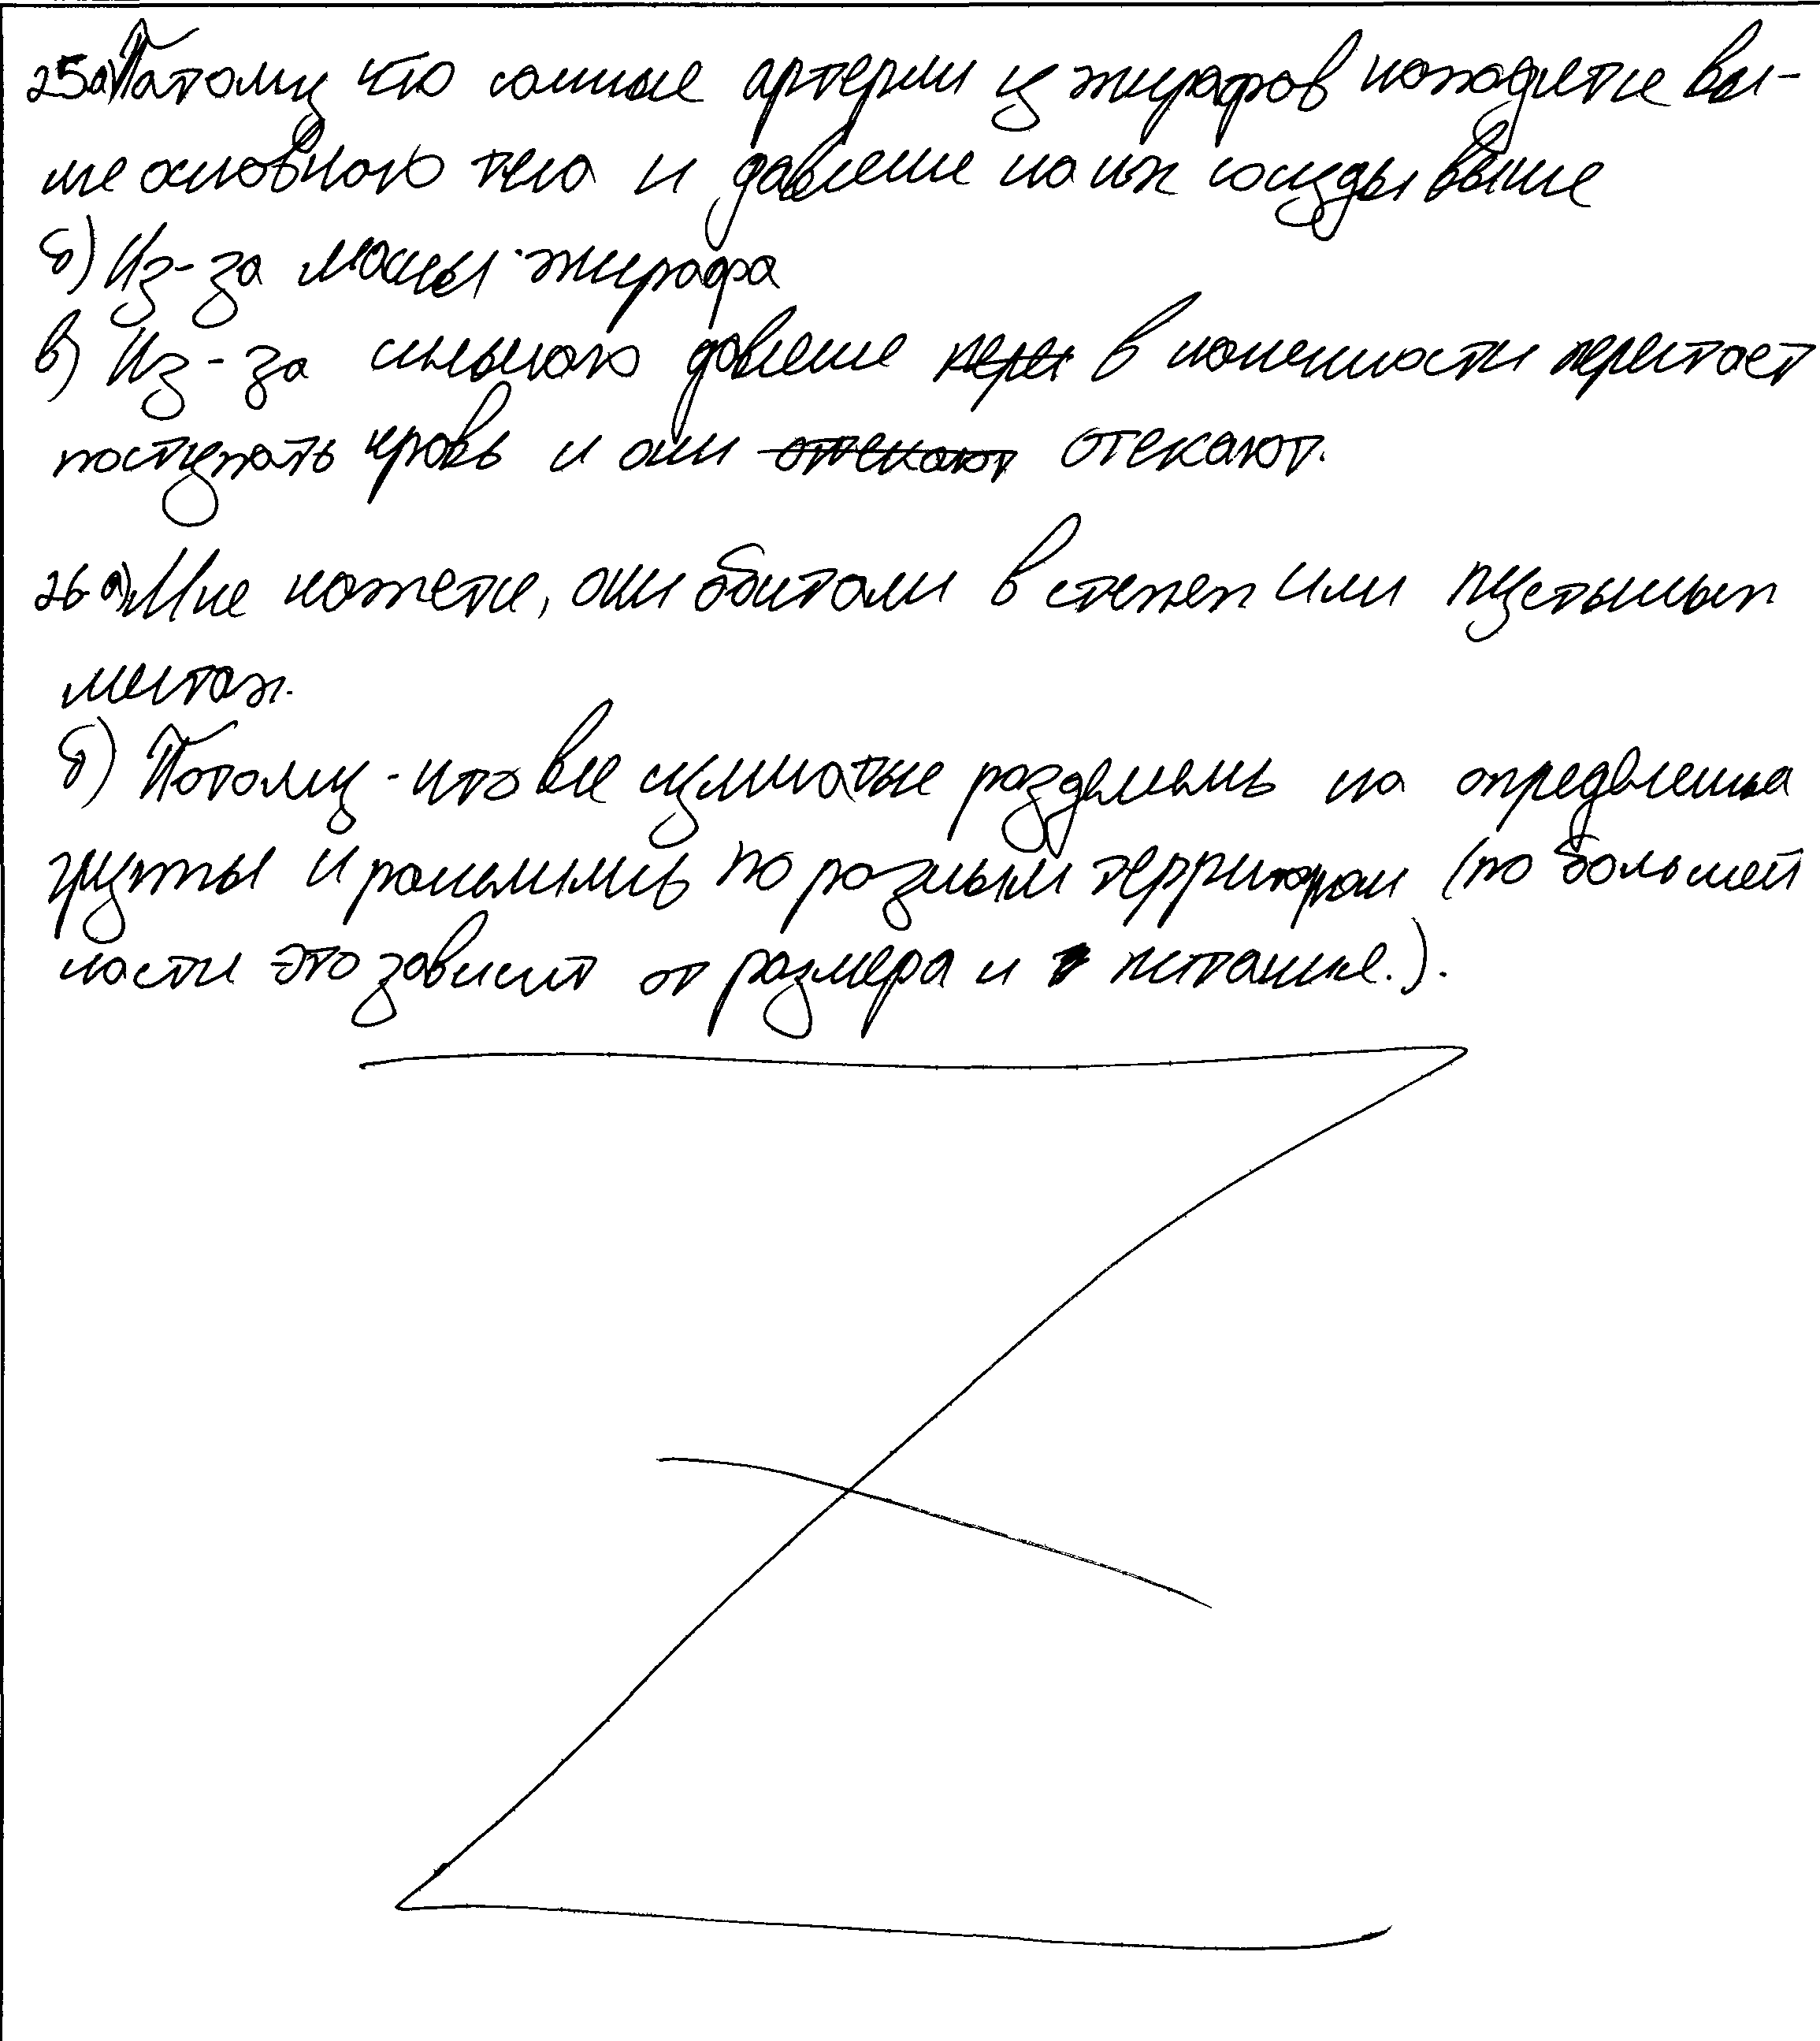 25а) Патому что сонные артерии у жирафов находятся вы-
ше основного тела и давление на их сосуды выше
б) Из-за массы жирафа
в) Из-за сильного давление в конечности перестаёт
поступать кровь и они отекают.
26 а) Мне кажется, они обитали в степях или пустынных
местах.
б) Потому-что все сумчатые разделены на определенные
группы и расселились по разным территориям (по большей
части это зависит от размера и питание.).